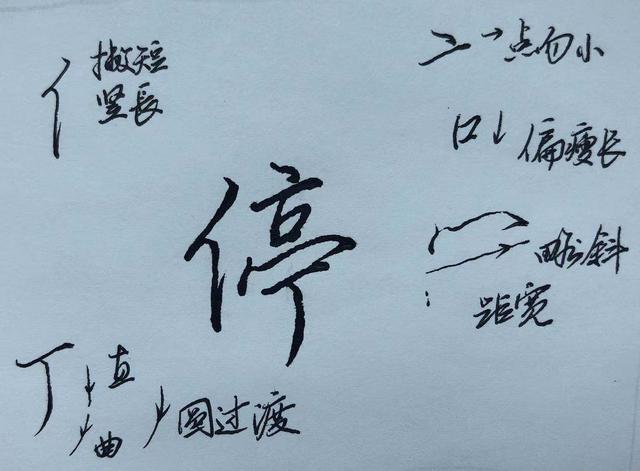 亻 撇短
竖長
亠 点勿小
口 偏瘦长
停
冖 略斜
距宽
丁 直
曲
圆过渡